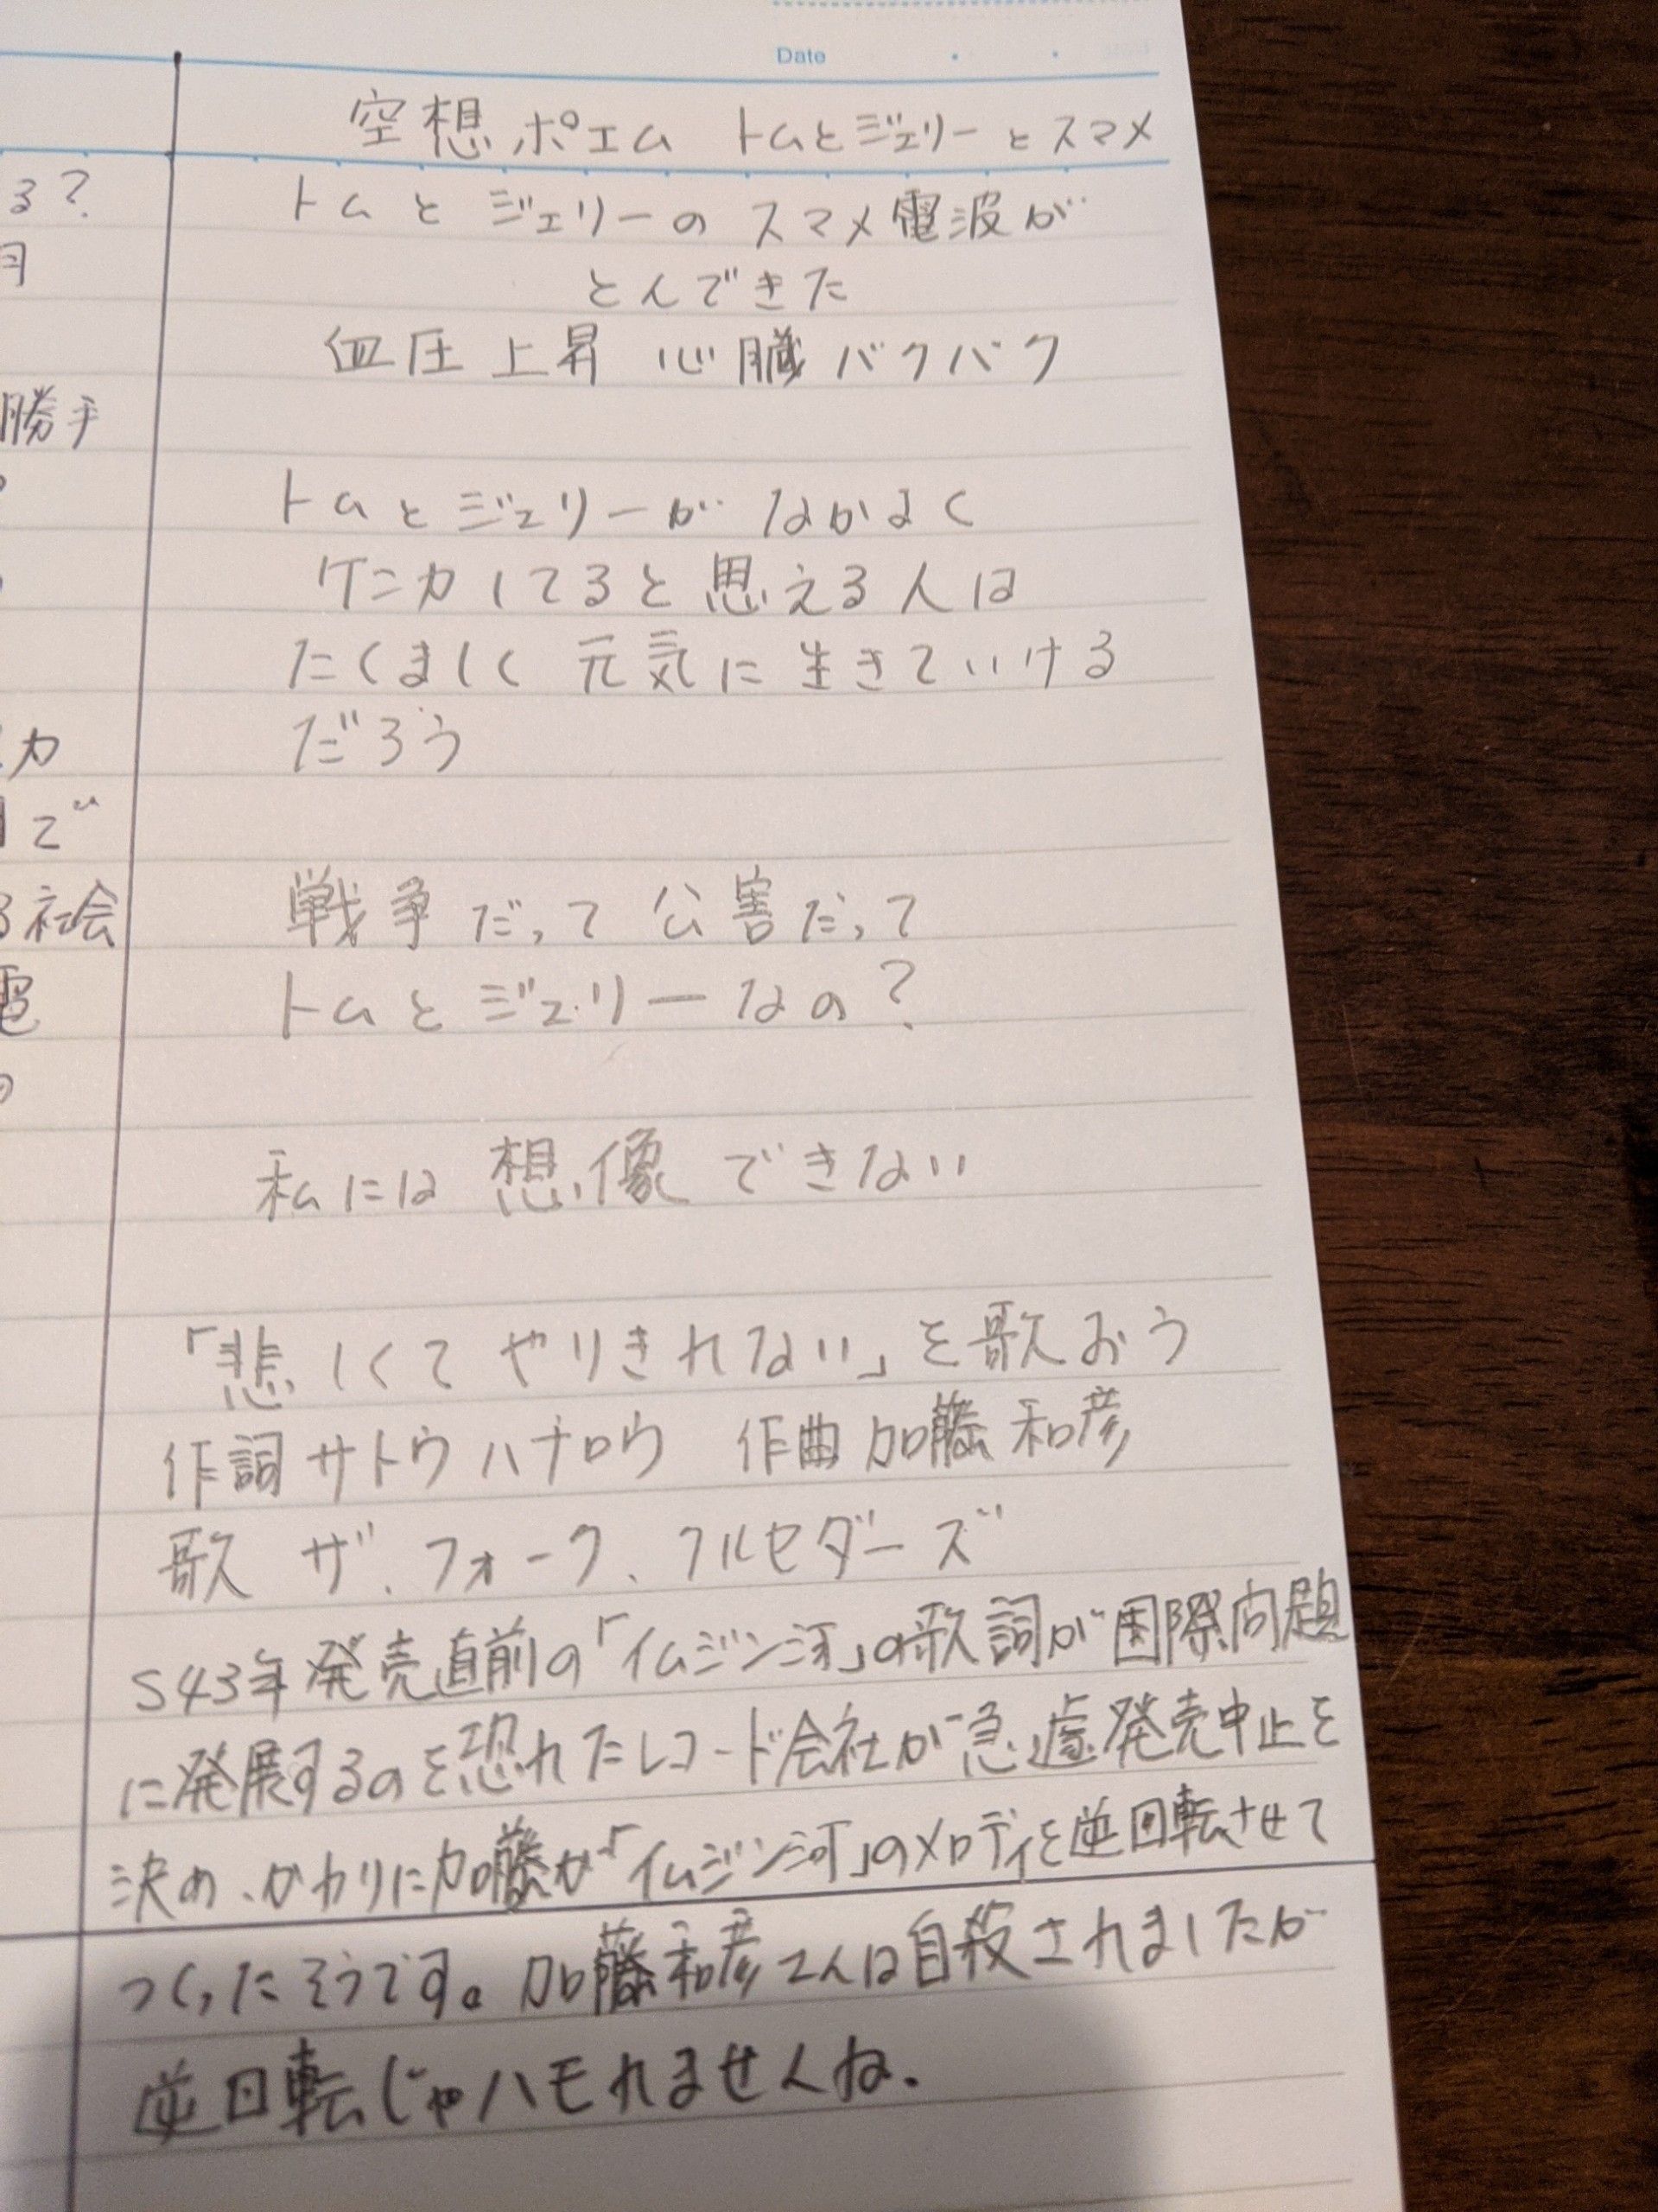 Date
空想ポエム トムとジェリーとスマメ
トムとジェリーのスマメ電波が
とんできた
血圧上昇 心臓バクバク
トムとジェリーがなかよく
ケンカしてると思える人は
たくましく 元気に生きていける
だろう
戦争だって 公害だって
トムとジェリーなの?
私には 想像できない
「悲しくてやりきれない」を歌おう
作詞 サトウハチロウ 作曲 加藤和彦
歌 ザ、フォーク、クルセダーズ
S43年発売直前の「イムジン河」の歌詞が国際問題
に発展するのを恐れたレコード会社が急遽発売中止を
決め、かわりに加藤が「イムジン河」のメロディを逆回転させて
つくったそうです。加藤和彦さんは自殺されましたが
逆回転じゃハモれませんね.
る?
月
勝手
力
で
る社会
電
の